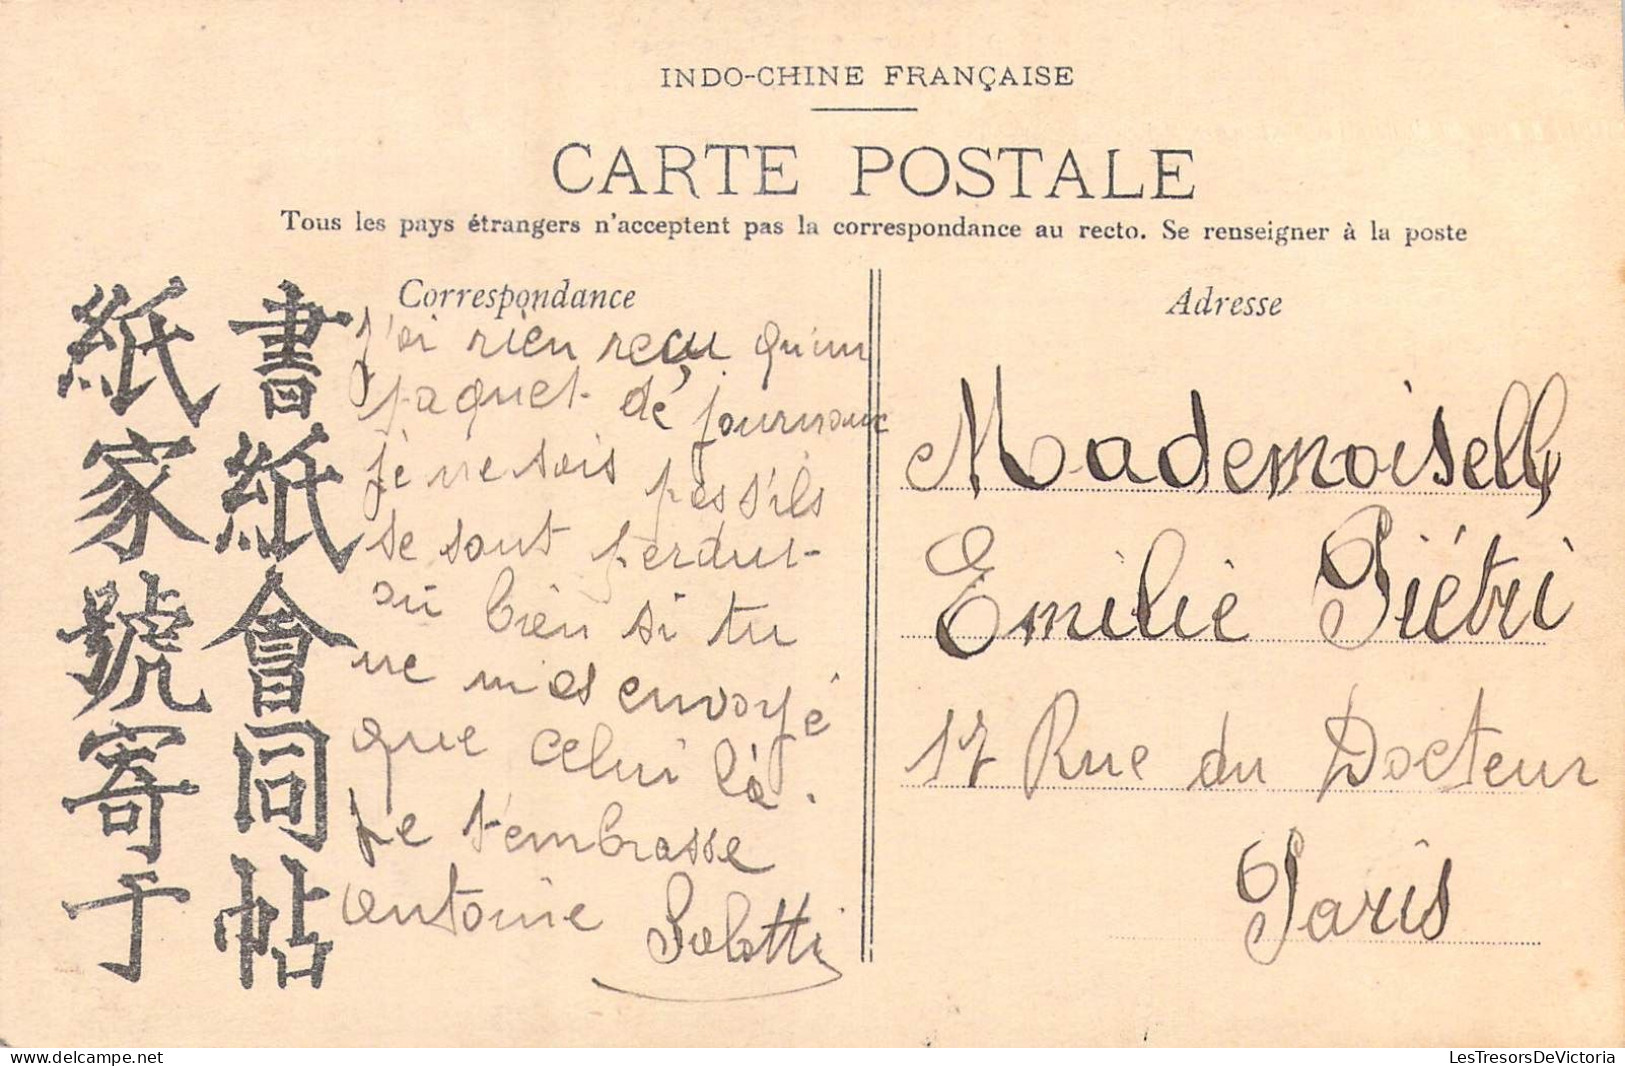 INDO-CHINE FRANÇAISE
CARTE POSTALE
Tous les pays étrangers n'acceptent pas la correspondance au recto. Se renseigner à la poste
書紙會同帖
紙家號寄于
Correspondance
j'ai rien reçu qu'un
paquet de journaux
je ne sais pas s'ils
se sont perdut
ou bien si tu
ne m'as envoyé
que celui là.
je t'embrasse
antoine
Adresse
Mademoiselle
Emilie Piétri
17 Rue du Docteur
Paris
LesTresorsDeVictoria